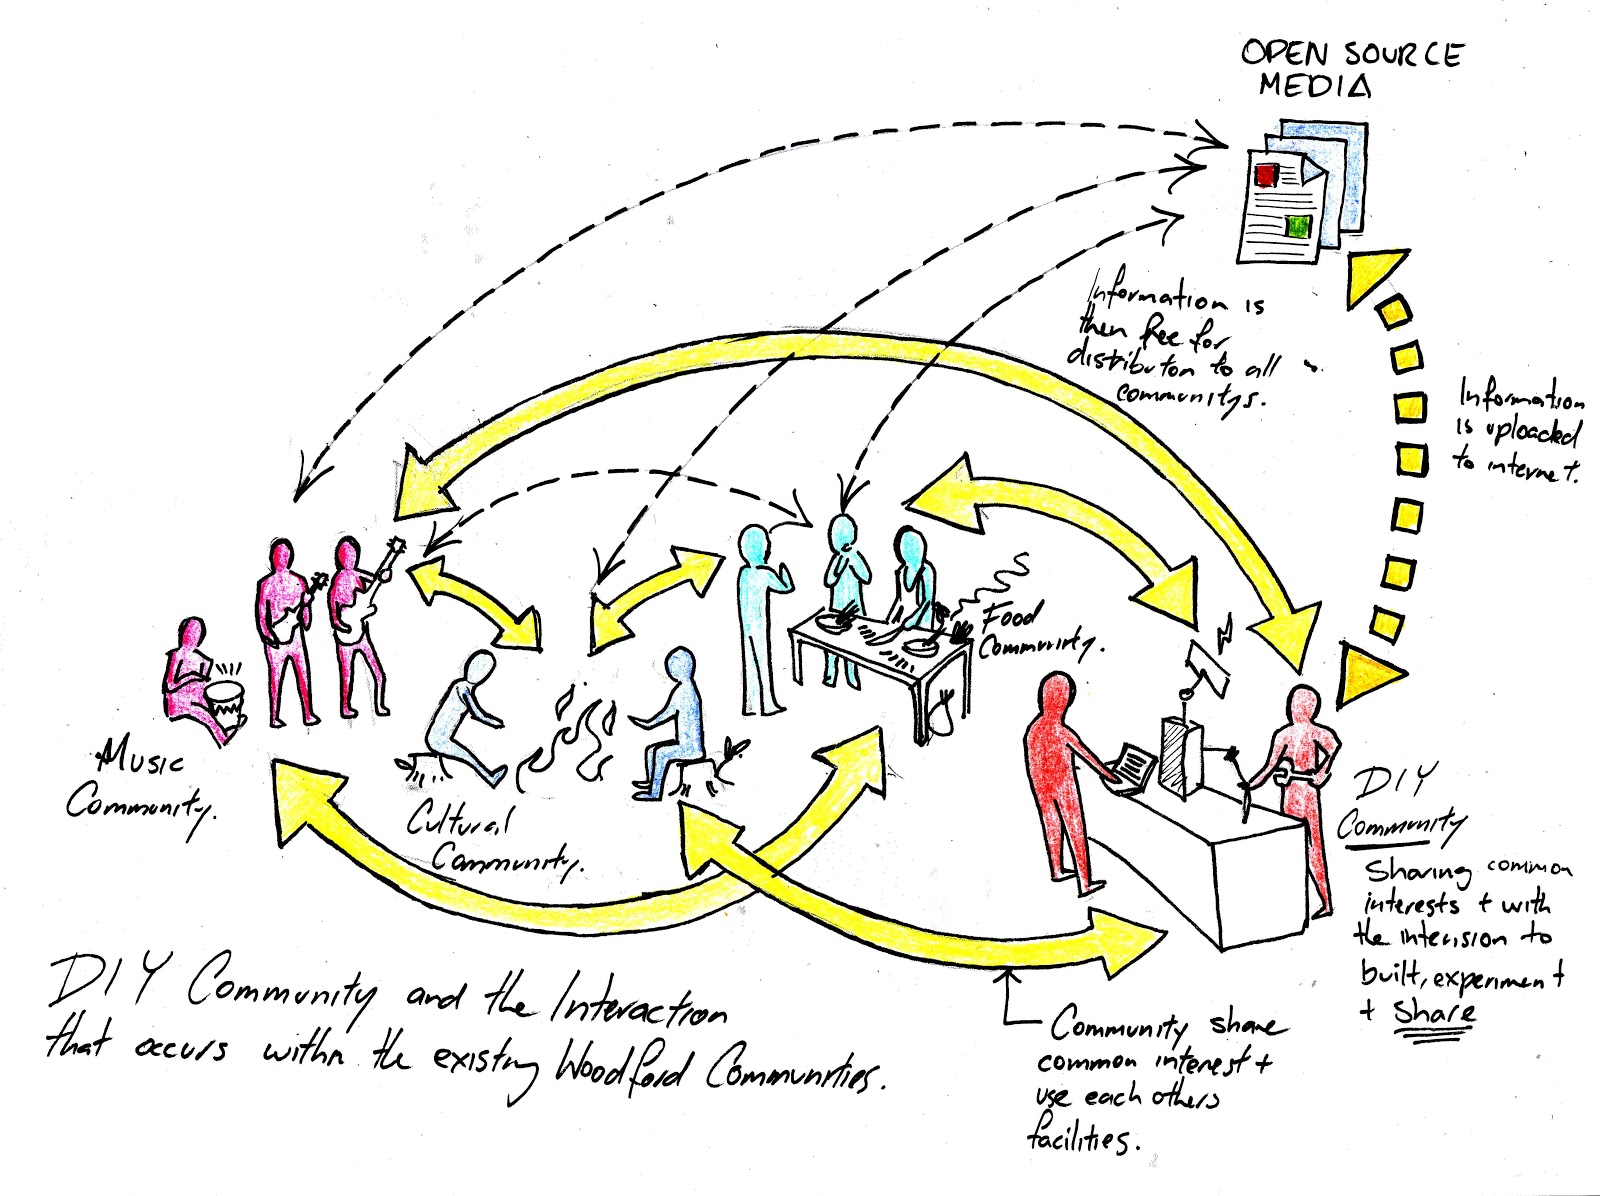 OPEN SOURCE
MEDIA
Information is
then free for
distributon to all
communitys.
Information
is uploaded
to internet.
Food
Community.
Music
Community.
Cultural
Community.
DIY
Community
Sharing common
interests + with
the intension to
built, experiment
+ Share
DIY Community and the Interaction
that occurs within the existing Woodford Communities.
Community share
common interest +
use each others
facilities.